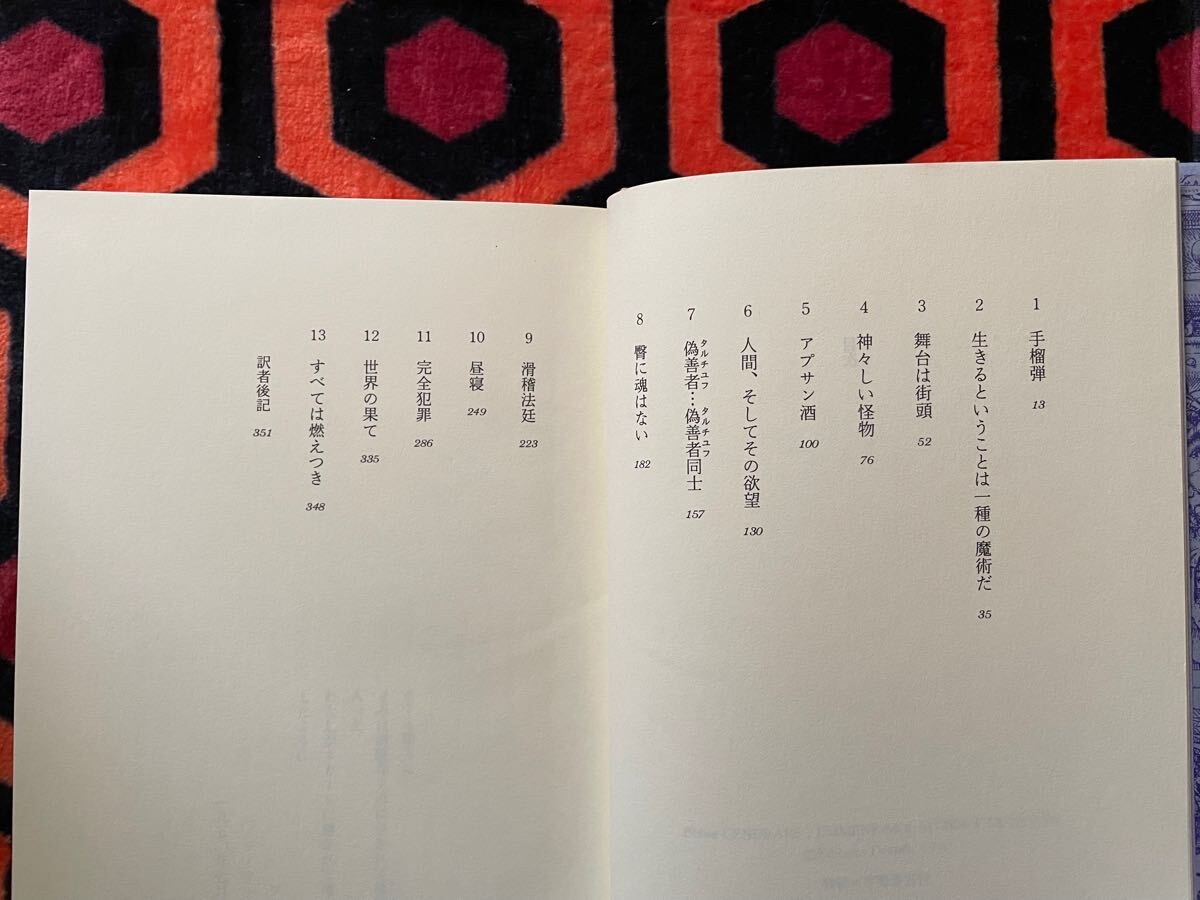 1 手榴弾 13
2 生きるということは一種の魔術だ 35
3 舞台は街頭 52
4 神々しい怪物 76
5 アプサン酒 100
6 人間、そしてその欲望 130
7 偽善者…偽善者同士 157
タルチユフ タルチユフ
8 臀に魂はない 182
9 滑稽法廷 223
10 昼寝 249
11 完全犯罪 286
12 世界の果て 335
13 すべては燃えつき 348
訳者後記 351